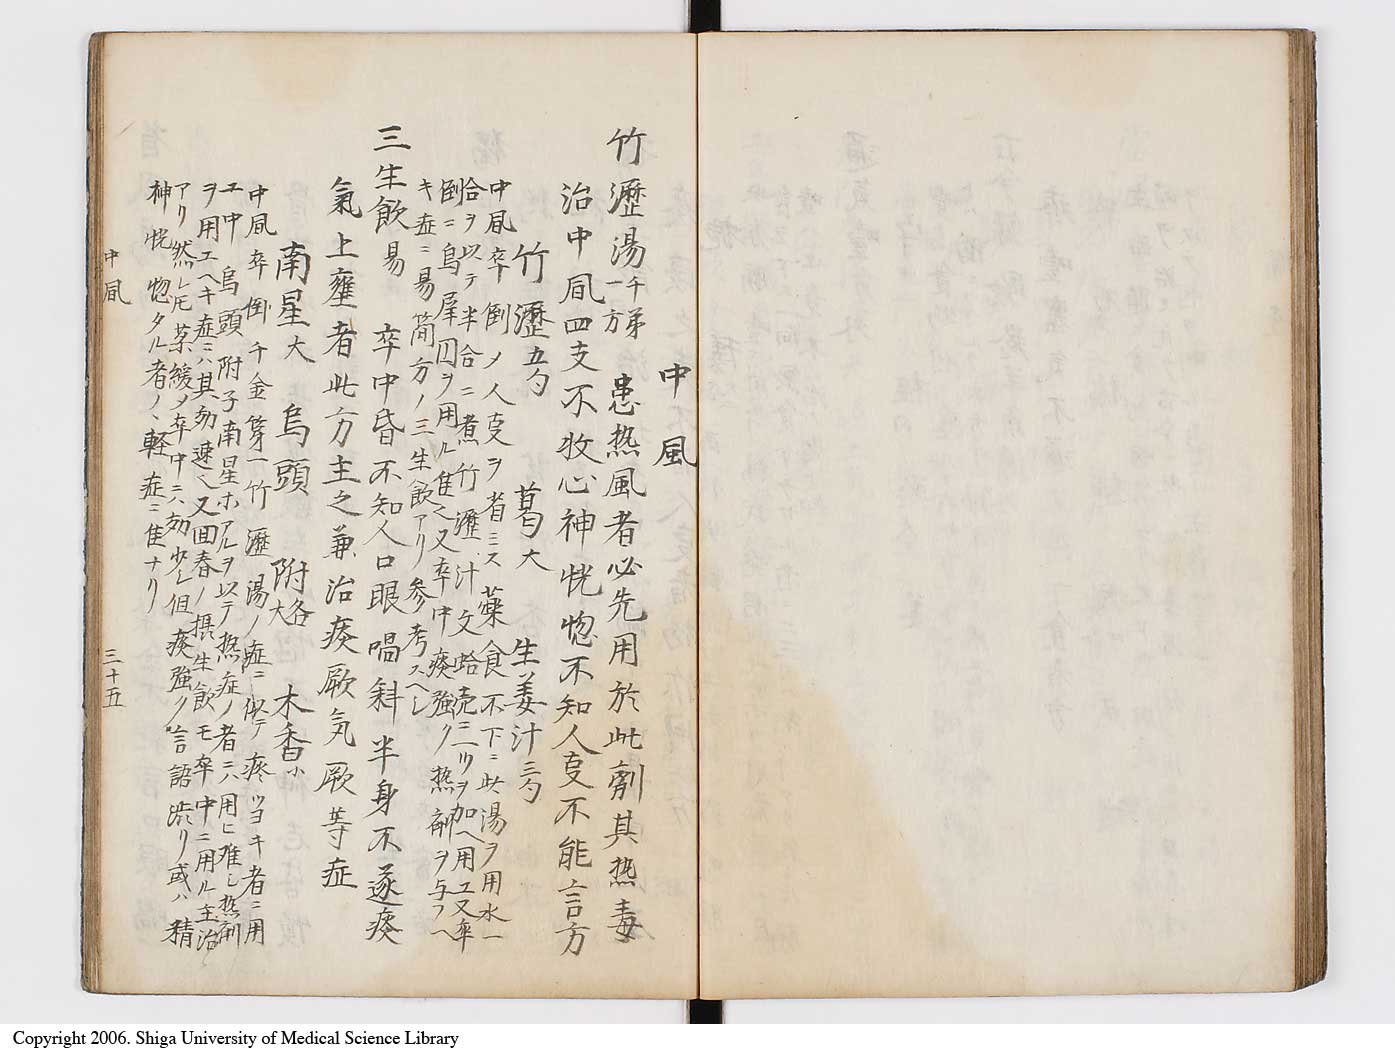 中風
竹瀝湯 千第一方 患热風者必先用於此劑其热毒
治中風四支不收心神恍惚不知人叓不能言方
竹瀝五勺 葛大 生姜汁三勺
中風卒倒ノ人叓ヲ省ミス藥食不下ニ此湯ヲ用水一
合ヲ以テ半合ニ煮竹瀝汁文蛤壳ニ一ツヲ加ヘ用ユ又卒
倒ニ烏犀圓ヲ用ル隹之又卒中痰強ク热劑ヲ与フヘ
キ症ニ易簡方ノ三生飲アリ参考スヘシ
三生飲 易 卒中昏不知人口眼喎斜半身不遂痰
氣上壅者此方主之兼治痰厥気厥等症
南星大 烏頭 附各大 木香小
中風卒倒千金第一竹瀝湯ノ症ニ似テ痰ツヨキ者ニ用
ユ中烏頭附子南星ホアルヲ以テ热症ノ者ニハ用ヒ难シ热劑
ヲ用ユヘキ症ニハ其効速ヘ又回春ノ摂生飲モ卒中ニ用ル主治
アリ然レ𪜈薬緩メ卒中ニハ効少シ但痰強ク言語渋リ或ハ精
神恍惚タル者ノ軽症ニ隹ナリ
中風
三十五
Copyright 2006. Shiga University of Medical Science Library